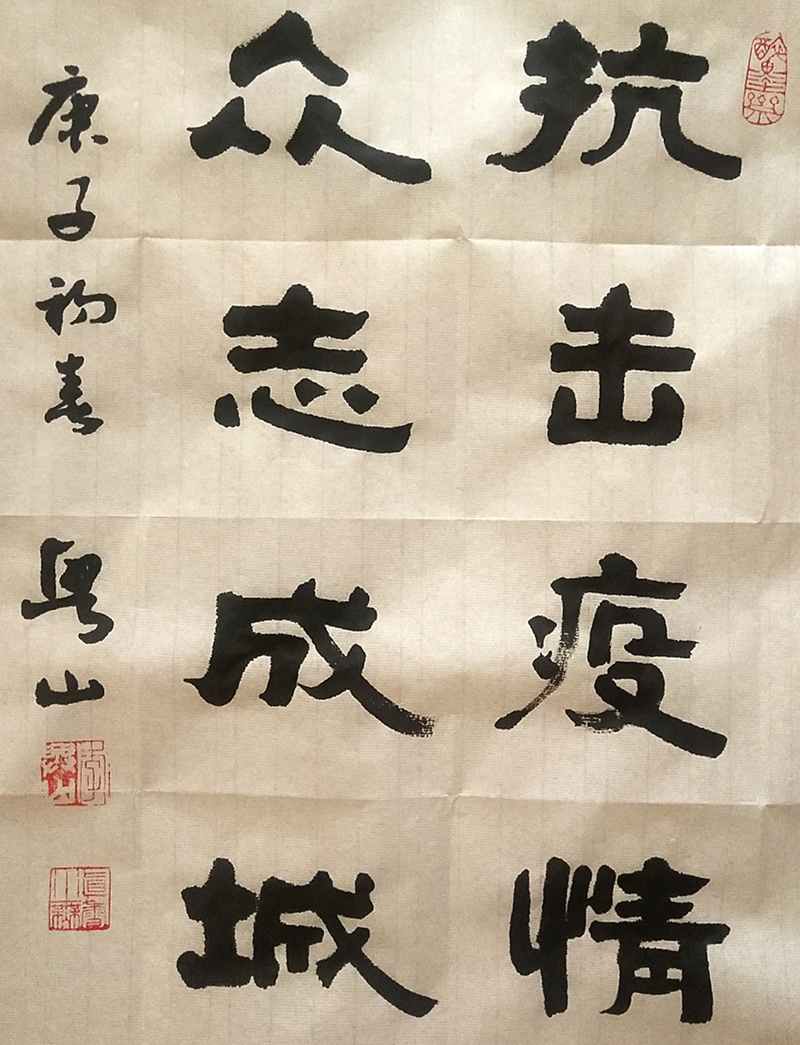 抗击疫情
众志成城
庚子初春 粤山